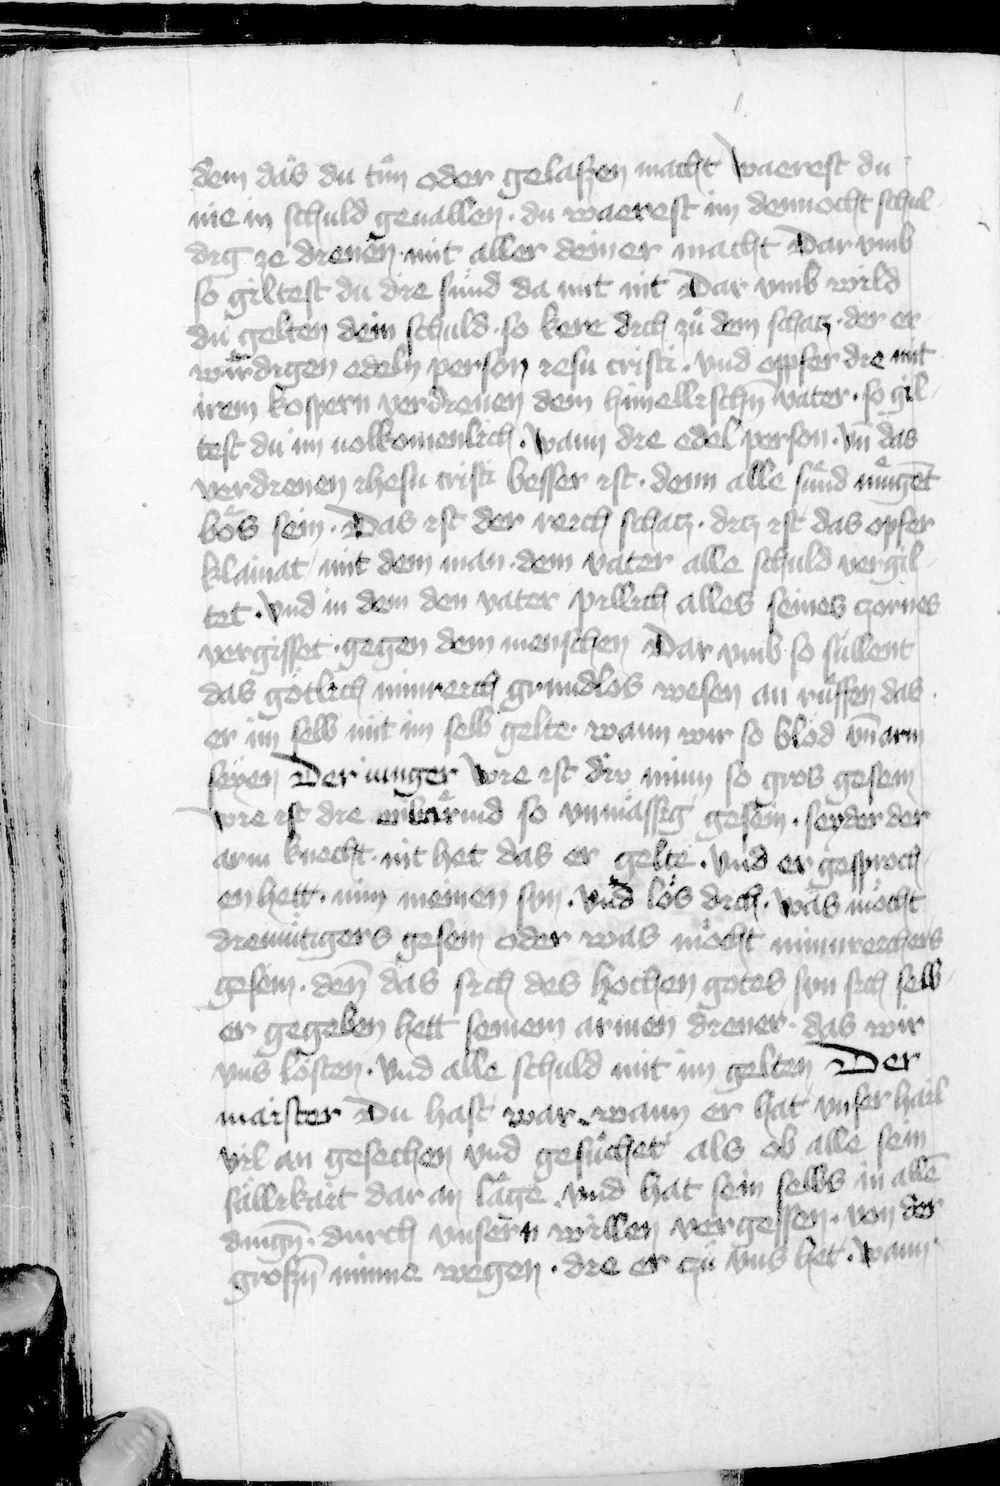 dem das du tůn oder gelaſzen macht Waereſt du
nie in ſchuld geuallen · du waereſt im dennocht ſchul
dig ze dienen · mit aller deiner macht Dar vmb
ſo gilteſt du die ſünd da mit nit Dar vmb wild
du gelten dein ſchuld · ſo kere dich zů dem ſchatz · der er
wirdigen edeln perſon ieſu criſti · vnd opfer die mit
irem koſpern verdienen dem himelliſchn̄ vater · ſo gil
teſt du im uolkomenlich · Wann die edel perſon · vn̄ das
verdienen iheſu criſti beſſer iſt · denn alle ſünd mügēt
bös ſein · Das iſt der reich ſchatz · ditz iſt das opfer
klainat · mit dem man · dem vater alle ſchuld vergil
tet · Vnd in dem den vater pillich alles ſeines zornes
vergiſſet · gegen dem menſchen Dar vmb ſo ſüllent
das götlich minreich grundlos weſen an rüffen das
er im ſelb mit im ſelb gelte · wann wir ſo blöd vn̄ arm
ſeyen Der iunger Wie iſt diu minn ſo gros geſein
Wie iſt die erbärmd ſo vnmäſſig geſein · ſeyder der
arm knecht · nit het das er gelte · Vnd er geſproch
en hett · nim meinen ſun · Vnd lös dich · Was möcht
diemütigers geſein oder was möcht minnreichers
geſein · den̄ das ſich des hochen gotes ſun ſich ſelb
er gegeben hett ſeinem armen diener · das wir
vns löſten · Vnd alle ſchuld mit im gelten Der
maiſter Du haſt war · wann er hat vnſer hail
vil an geſechen vnd geſůchet als ob alle ſein
ſällikait dar an läge · vnd hat ſein ſelbs in allē
dingn̄ · durch vnſern willen vergeſſen · von der
groſzn̄ minne wegen · die er czü vns het · Wann